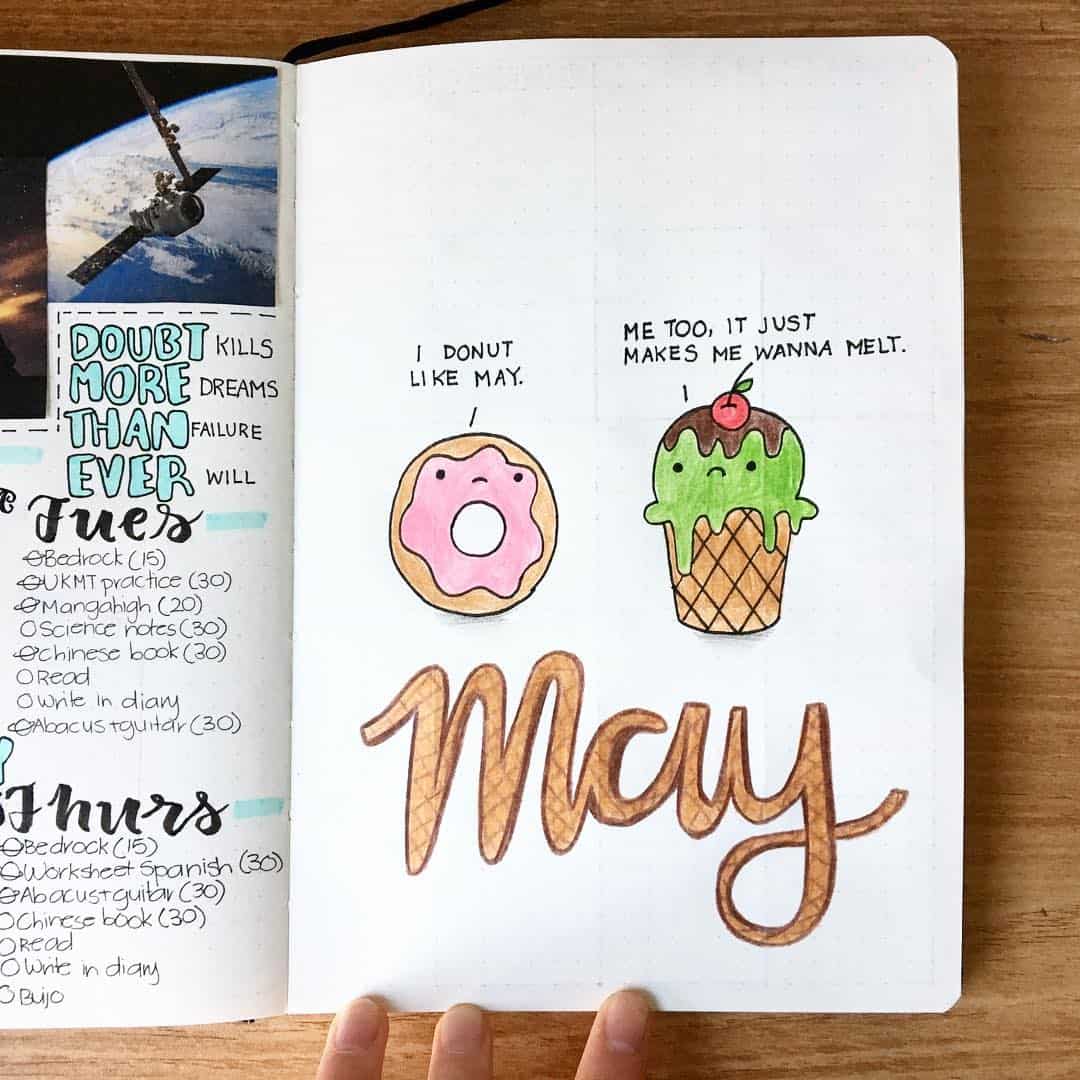 DOUBT KILLS
MORE DREAMS
THAN FAILURE
EVER WILL
Tues
Bedrock (15)
UKMT practice (30)
Mangahigh (20)
Science notes (30)
Chinese book (30)
Read
Write in diary
Abacus + guitar (30)
Thurs
Bedrock (15)
Worksheet Spanish (30)
Abacus + guitar (30)
Chinese book (30)
Read
Write in diary
Bujo
I DONUT
LIKE MAY.
ME TOO, IT JUST
MAKES ME WANNA MELT.
May